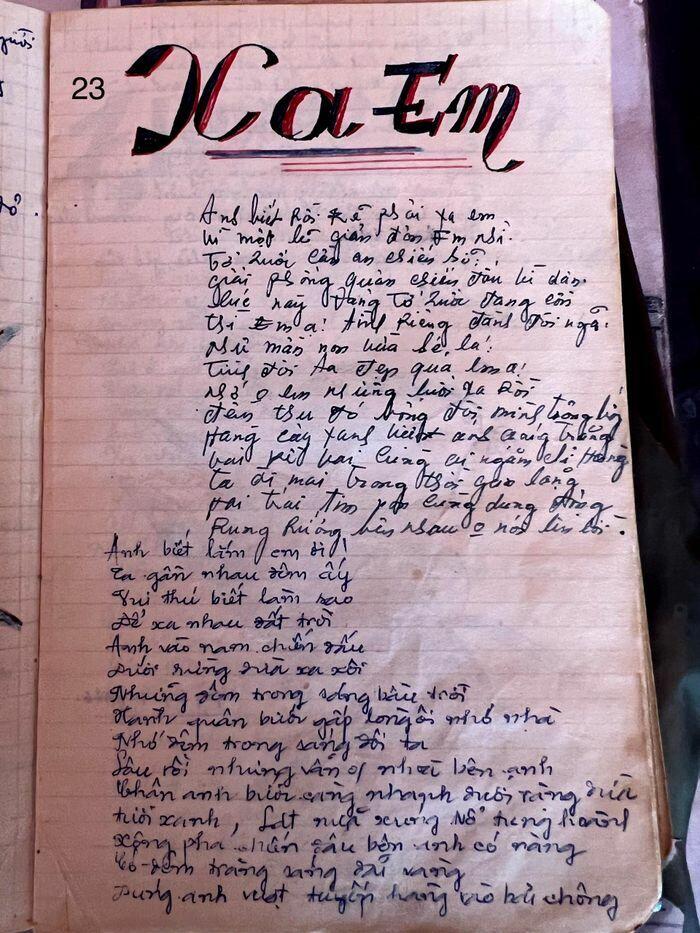 23
Xa Em
Anh biết rồi sẽ phải xa em
Vì một lẽ giản đơn Em nhỉ.
Tổ Quốc cần an chiến sĩ
giải phóng quân chiến đấu vì dân.
Lúc này Đảng Tổ Quốc đang cần
thì Em ạ! tình riêng đành đôi ngã.
như mầm non vừa hé lá!
Tình đời ta đẹp quá Em ạ!
nhớ o em những buổi xa rồi
đêm thu đó bóng đôi mình
Hàng cây xanh biếc anh ánh trăng
vai kề vai cùng ngắm chị Hằng
ta đi mãi trong thời gian lặng
hai trái tim non cùng dung động
Rung Rưởng bên nhau o nói lên lời.
Anh biết lắm em ơi!
Ta gần nhau đêm ấy
Vui thú biết làm sao
Để xa nhau đất trời
Anh vào nam chiến đấu
Dưới rừng dừa xa xôi
Những đêm trong sáng bầu trời
Hành quân bước gấp lòng ôi nhớ nhà
Nhớ đêm trong sáng đôi ta
Lâu rồi nhưng vẫn o nhoà bên anh
Chân anh bước càng nhanh dưới rặng dừa
tươi xanh, Lát nữa xung nổ tung hoành
Xông pha chiến đấu bên anh có nàng
Có đêm trăng sáng dải vàng
Đưng anh vượt tuyến hang vào bãi chông